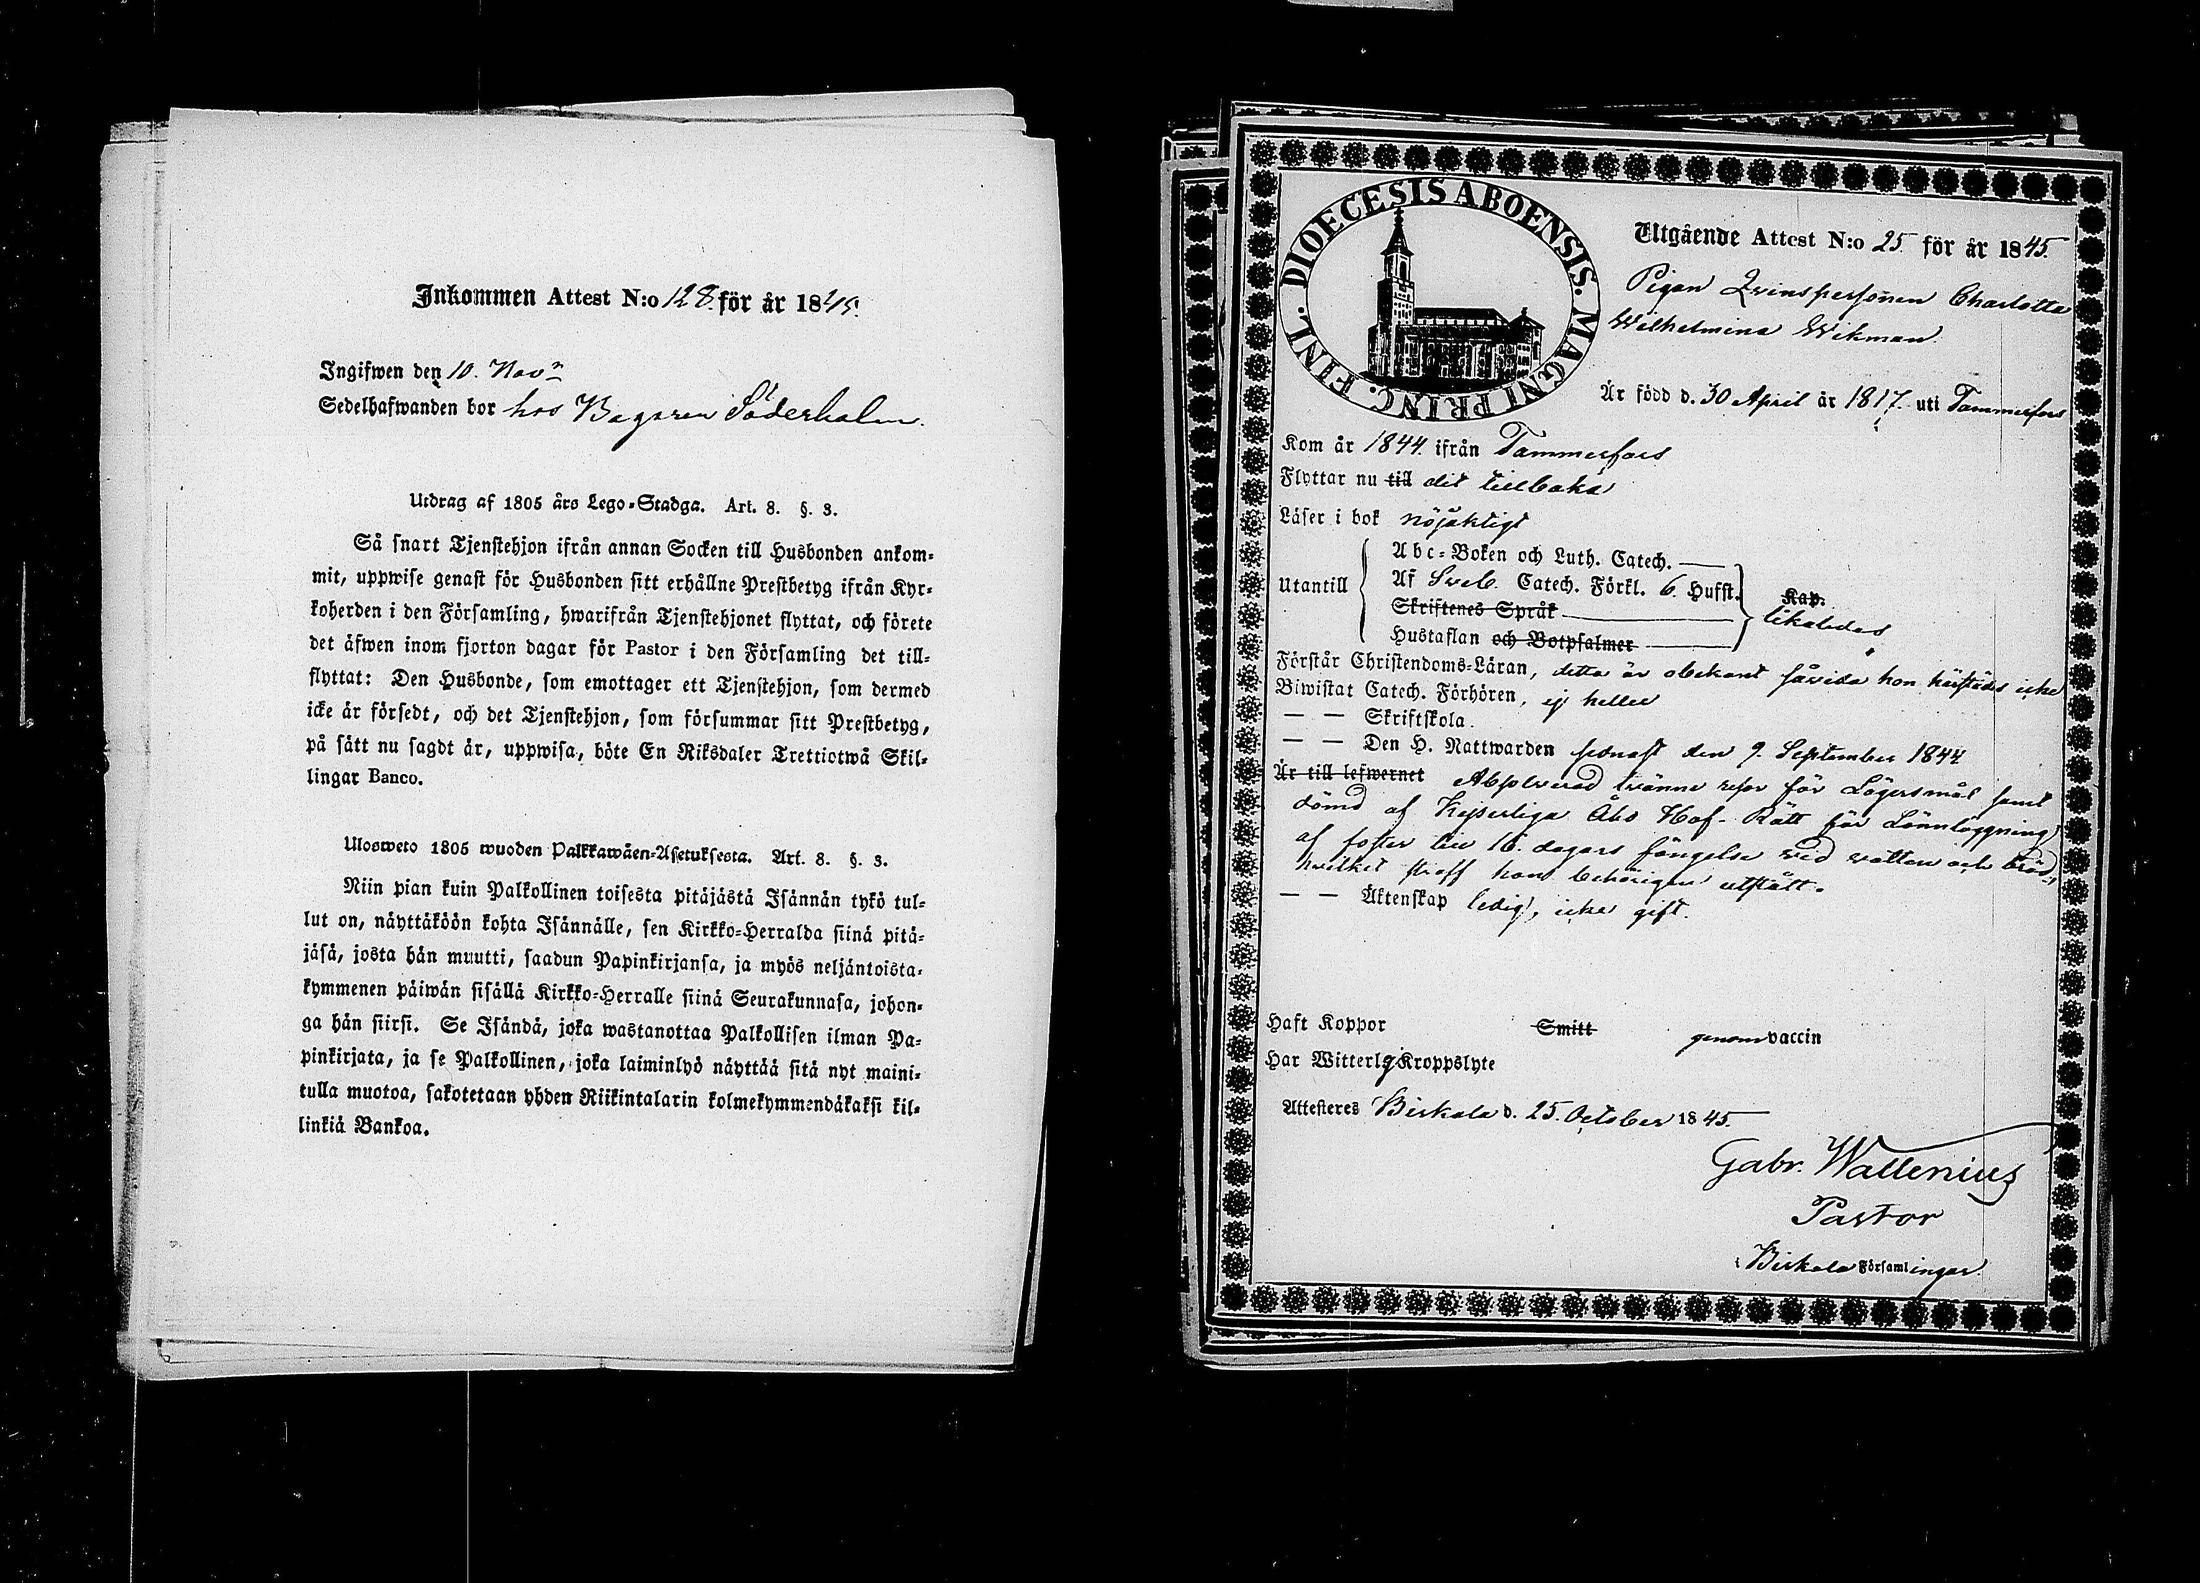 Inkommen Attest N:o 128. för år 1845.
Ingifwen den 10. Novr
Sedelhafwanden bor hos Bagaren Söderholm.
Utdrag af 1805 års Lego-Stadga. Art. 8. §. 3.
Så snart Tjenstehjon ifrån annan Socken till Husbonden ankom-
mit, uppwise genast för Husbonden sitt erhållne Prestbetyg ifrån Kyr-
koherden i den Församling, hwarifrån Tjenstehjonet flyttat, och förete
det äfwen inom fjorton dagar för Pastor i den Församling det till-
flyttat: Den Husbonde, som emottager ett Tjenstehjon, som dermed
icke är försedt, och det Tjenstehjon, som försummar sitt Prestbetyg,
på sätt nu sagdt är, uppwisa, böte En Riksdaler Trettiotwå Skil-
lingar Banco.
Ulosweto 1805 wuoden Palkkawäen-Asetuksesta. Art. 8. §. 3.
Niin pian kuin Palkollinen toisesta pitäjästä Isännän tykö tul-
lut on, näyttäköön kohta Isännälle, sen Kirkko-Herralda siinä pitä-
jäsä, josta hän muutti, saadun Papinkirjansa, ja myös neljäntoista-
kymmenen päiwän sisällä Kirkko-Herralle siinä Seurakunnasa, johon-
ga hän siirsi. Se Isändä, joka wastanottaa Palkollisen ilman Pa-
pinkirjata, ja se Palkollinen, joka laiminlyö näyttää sitä nyt maini-
tulla muotoa, sakotetaan yhden Riikintalarin kolmekymmendäkaksi kil-
linkiä Bankoa.
DIOECESIS ABOENSIS. MAGNI PRINC. FINL.
Utgående Attest N:o 25. för år 1845.
Pigan Qvinspersonen Charlotta
Wilhelmina Wikman.
Är född d. 30 April år 1817. uti Tammerfors
Kom år 1844. ifrån Tammerfors
Flyttar nu till dit tillbaka
Läser i bok nöjaktigt
Utantill
Abc-Boken och Luth. Catech.
Af Sveb. Catech. Förkl. 6. Hufst.
Skriftenes Språk
Hustaflan och Botpsalmer
Kap.
likaledes
Förstår Christendoms-Läran, detta är obekant såvida hon härstädes icke
Biwistat Catech. Förhören, ej heller
— — Skriftskola.
— — Den H. Nattwarden sednast den 9. September 1844
Är till lefwernet Absolverad tvänne resor för Lägersmål samt
dömd af Kejserliga Åbo Hof-Rätt för Lönnläggning
af foster till 16. dagars fängelse vid vatten och bröd,
hvilket straff hon behörigen utstått.
— — Äktenskap ledig, icke gift.
Haft Koppor Smitt genom vaccin
Har Witterlig Kroppslyte
Attesteres Birkala d. 25. October 1845.
Gabr. Wallenius
Pastor
i Birkala Församlingar.